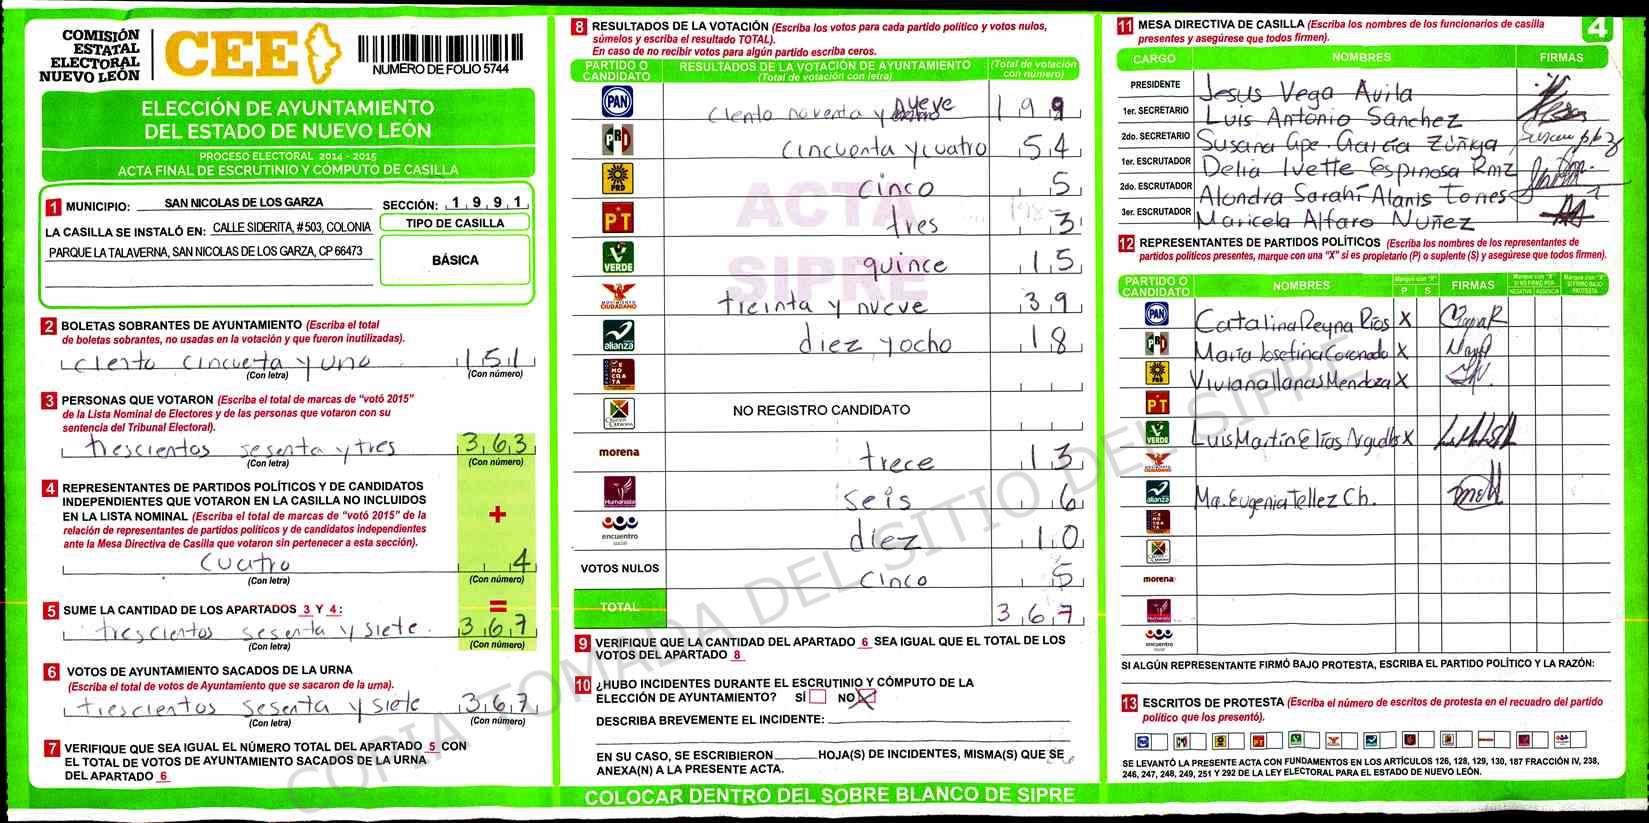 COMISIÓN
ESTATAL
ELECTORAL
NUEVO LEÓN
CEE
NUMERO DE FOLIO 5744
ELECCIÓN DE AYUNTAMIENTO
DEL ESTADO DE NUEVO LEÓN
PROCESO ELECTORAL 2014 - 2015
ACTA FINAL DE ESCRUTINIO Y CÓMPUTO DE CASILLA
1 MUNICIPIO: SAN NICOLAS DE LOS GARZA SECCIÓN: 1991
LA CASILLA SE INSTALÓ EN: CALLE SIDERITA, # 503, COLONIA
PARQUE LA TALAVERNA, SAN NICOLAS DE LOS GARZA, CP 66473
TIPO DE CASILLA
BÁSICA
2 BOLETAS SOBRANTES DE AYUNTAMIENTO (Escriba el total
de boletas sobrantes, no usadas en la votación y que fueron inutilizadas).
Ciento cincueta y uno 151
(Con letra) (Con número)
3 PERSONAS QUE VOTARON (Escriba el total de marcas de "votó 2015"
de la Lista Nominal de Electores y de las personas que votaron con su
sentencia del Tribunal Electoral).
trescientos sesenta y tres 363
(Con letra) (Con número)
4 REPRESENTANTES DE PARTIDOS POLÍTICOS Y DE CANDIDATOS
INDEPENDIENTES QUE VOTARON EN LA CASILLA NO INCLUIDOS
EN LA LISTA NOMINAL (Escriba el total de marcas de "votó 2015" de la
relación de representantes de partidos políticos y de candidatos independientes
ante la Mesa Directiva de Casilla que votaron sin pertenecer a esta sección).
+
Cuatro 4
(Con letra) (Con número)
=
5 SUME LA CANTIDAD DE LOS APARTADOS 3 Y 4:
trescientos sesenta y siete. 367
(Con letra) (Con número)
6 VOTOS DE AYUNTAMIENTO SACADOS DE LA URNA
(Escriba el total de votos de Ayuntamiento que se sacaron de la urna).
trescientos sesenta y siete 367
(Con letra) (Con número)
7 VERIFIQUE QUE SEA IGUAL EL NÚMERO TOTAL DEL APARTADO 5 CON
EL TOTAL DE VOTOS DE AYUNTAMIENTO SACADOS DE LA URNA
DEL APARTADO 6
8 RESULTADOS DE LA VOTACIÓN (Escriba los votos para cada partido político y votos nulos,
súmelos y escriba el resultado TOTAL).
En caso de no recibir votos para algún partido escriba ceros.
PARTIDO O CANDIDATO RESULTADOS DE LA VOTACIÓN DE AYUNTAMIENTO (Total de votación con letra) (Total de votación con número)
PAN Ciento noventa y nueve 199
PRI cincuenta y cuatro 54
PRD cinco 5
PT tres 3
VERDE quince 15
MOVIMIENTO CIUDADANO treinta y nueve 39
alianza diez y ocho 18
DEMOCRATA
NO REGISTRO CANDIDATO
morena trece 13
Humanista seis 6
encuentro social diez 10
VOTOS NULOS cinco 5
TOTAL 367
ACTA
SIPRE
9 VERIFIQUE QUE LA CANTIDAD DEL APARTADO 6 SEA IGUAL QUE EL TOTAL DE LOS
VOTOS DEL APARTADO 8
10 ¿HUBO INCIDENTES DURANTE EL ESCRUTINIO Y CÓMPUTO DE LA
ELECCIÓN DE AYUNTAMIENTO? SÍ NO X
DESCRIBA BREVEMENTE EL INCIDENTE:
EN SU CASO, SE ESCRIBIERON HOJA(S) DE INCIDENTES, MISMA(S) QUE SE
ANEXA(N) A LA PRESENTE ACTA.
COLOCAR DENTRO DEL SOBRE BLANCO DE SIPRE
COPIA TOMADA DEL SITIO DEL SIPRE
4
11 MESA DIRECTIVA DE CASILLA (Escriba los nombres de los funcionarios de casilla
presentes y asegúrese que todos firmen).
CARGO NOMBRES FIRMAS
PRESIDENTE Jesús Vega Avila
1er. SECRETARIO Luis Antonio Sánchez
2do. SECRETARIO Susana Gpe. García Zúñiga
1er. ESCRUTADOR Delia Ivette Espinosa Rmz
2do. ESCRUTADOR Alondra Sarahí Alanis Torres
3er. ESCRUTADOR Maricela Alfaro Nuñez
12 REPRESENTANTES DE PARTIDOS POLÍTICOS (Escriba los nombres de los representantes de
partidos políticos presentes, marque con una "X" si es propietario (P) o suplente (S) y asegúrese que todos firmen).
PARTIDO O CANDIDATO NOMBRES Marque con "X" P S FIRMAS Marque con "X" SI NO FIRMÓ POR NEGATIVA AUSENCIA Marque con "X" SI FIRMÓ BAJO PROTESTA
PAN Catalina Reyna Ríos X
PRI María Josefina Coronado X
PRD Viviana Llanas Mendoza X
PT
VERDE Luis Martín Elías Argudlo X
MOVIMIENTO CIUDADANO
alianza Ma. Eugenia Tellez Ch.
morena
Humanista
encuentro social
SI ALGÚN REPRESENTANTE FIRMÓ BAJO PROTESTA, ESCRIBA EL PARTIDO POLÍTICO Y LA RAZÓN:
13 ESCRITOS DE PROTESTA (Escriba el número de escritos de protesta en el recuadro del partido
político que los presentó).
SE LEVANTÓ LA PRESENTE ACTA CON FUNDAMENTOS EN LOS ARTÍCULOS 126, 128, 129, 130, 187 FRACCIÓN IV, 238,
246, 247, 248, 249, 251 Y 292 DE LA LEY ELECTORAL PARA EL ESTADO DE NUEVO LEÓN.